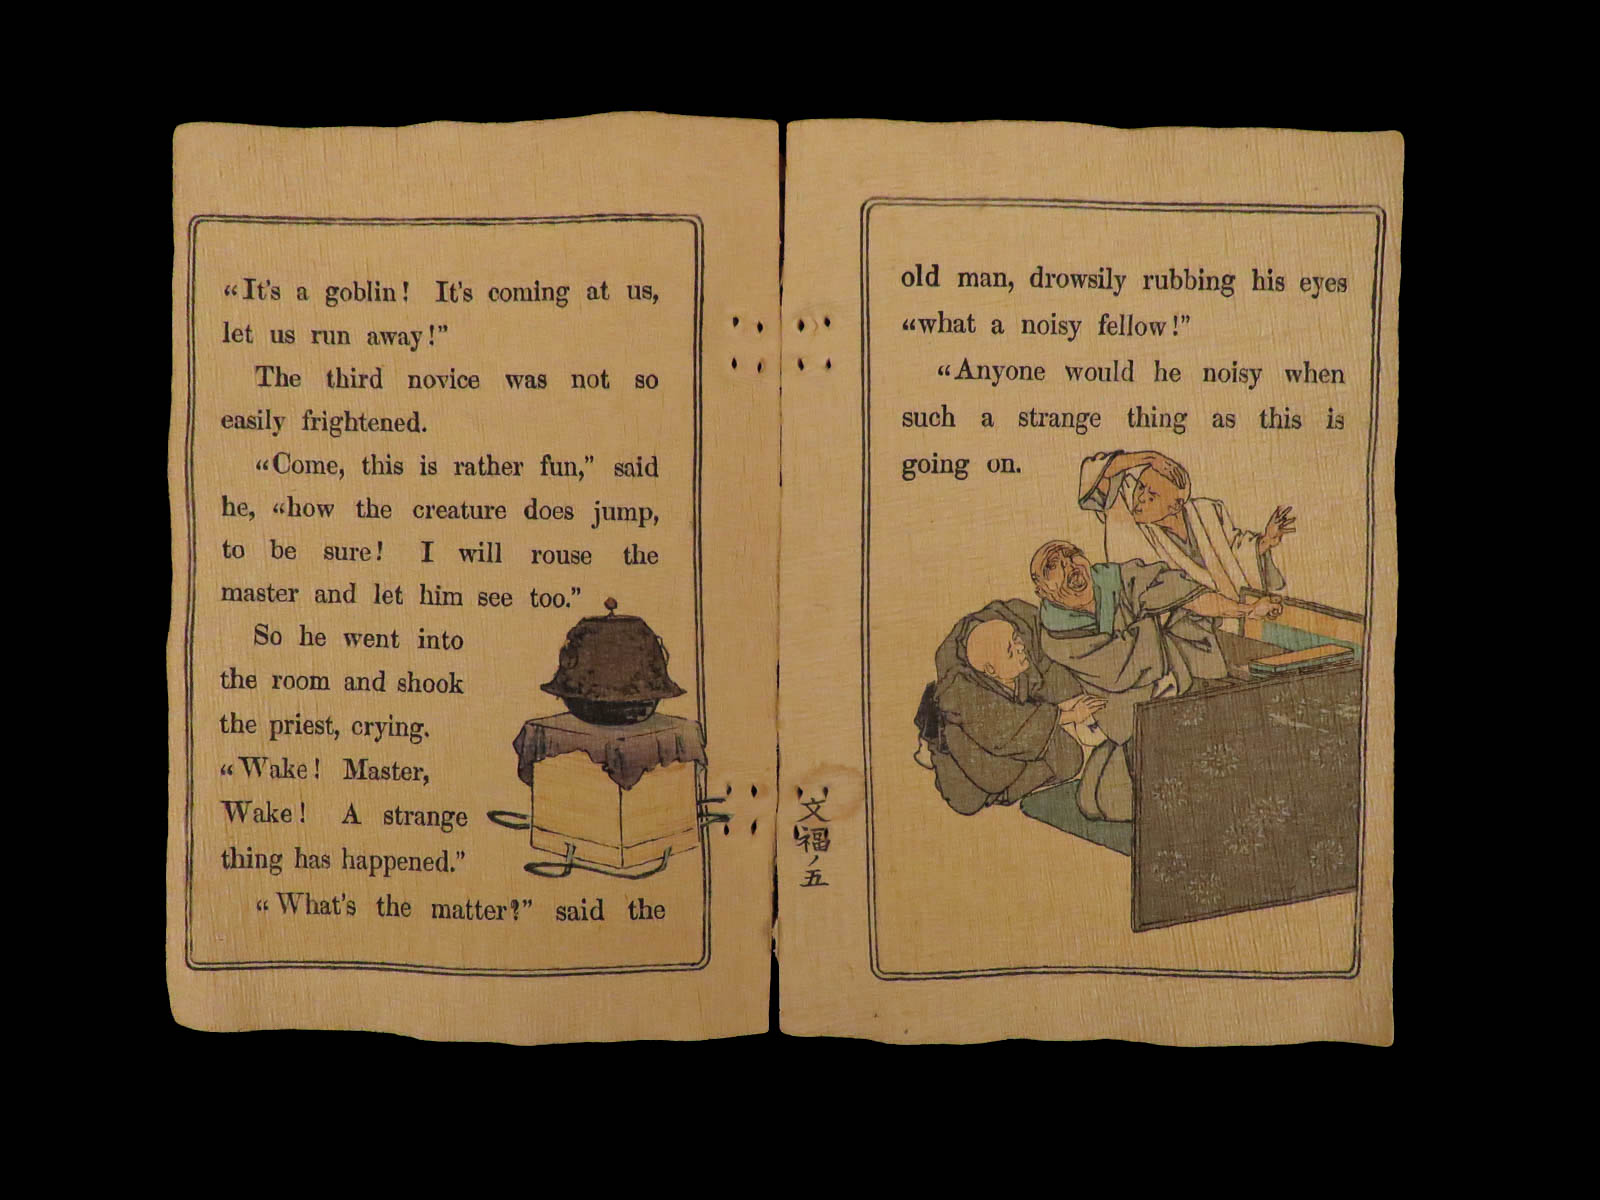 “It's a goblin! It's coming at us,
let us run away!”
The third novice was not so
easily frightened.
“Come, this is rather fun,” said
he, “how the creature does jump,
to be sure! I will rouse the
master and let him see too.”
So he went into
the room and shook
the priest, crying.
“Wake! Master,
Wake! A strange
thing has happened.”
“What's the matter?” said the
old man, drowsily rubbing his eyes
“what a noisy fellow!”
“Anyone would he noisy when
such a strange thing as this is
going on.
文福ノ五